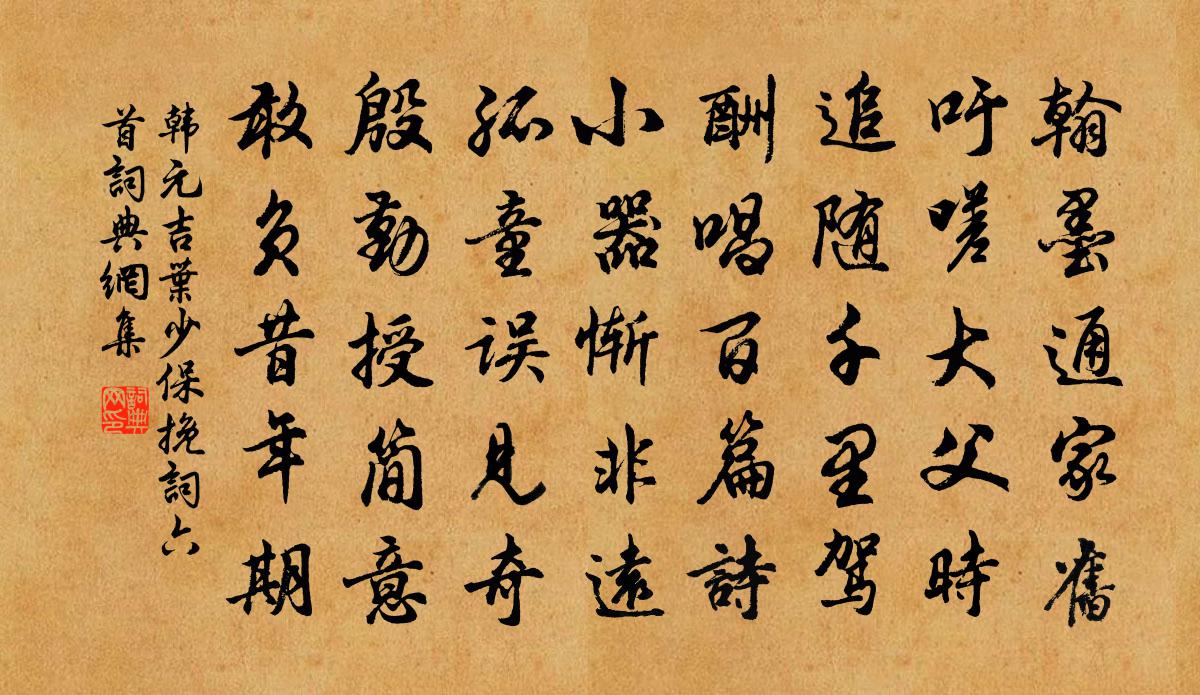 翰墨通家舊
吁嗟大父時
追随千里駕
酬唱百篇詩
小器惭非遠
孤童误見奇
殷勤授简意
敢负昔年期
韩元吉葉少保挽詞六
首詞典網集
詞典
网印